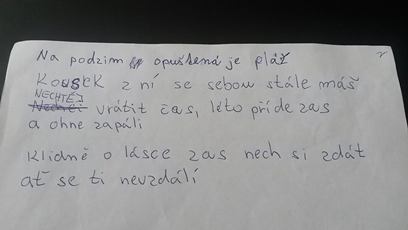 Na podzim opuštená je pláž
Kousek z ní se sebou stále máš
NECHTĚJ
Nechci vrátit čas, léto příde zas
a ohne zapálí
Klidně o lásce zas nech si zdát
ať se ti nevzdálí